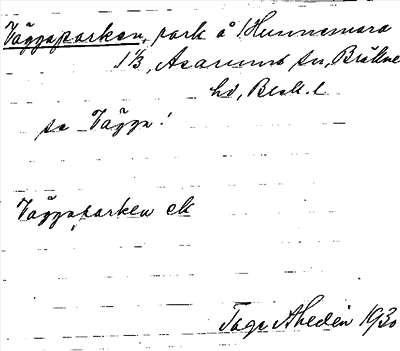 Väggaparken, park å Hunnemara
1⅓, Asarums sn, Bräkne
hd, Blek. l
se Vägga!
Väggaparken ek
Tage Ahldén 1930